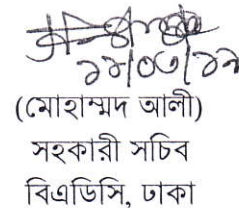 ১৯/০৩/১৯
(মোহাম্মদ আলী)
সহকারী সচিব
বিএডিসি, ঢাকা